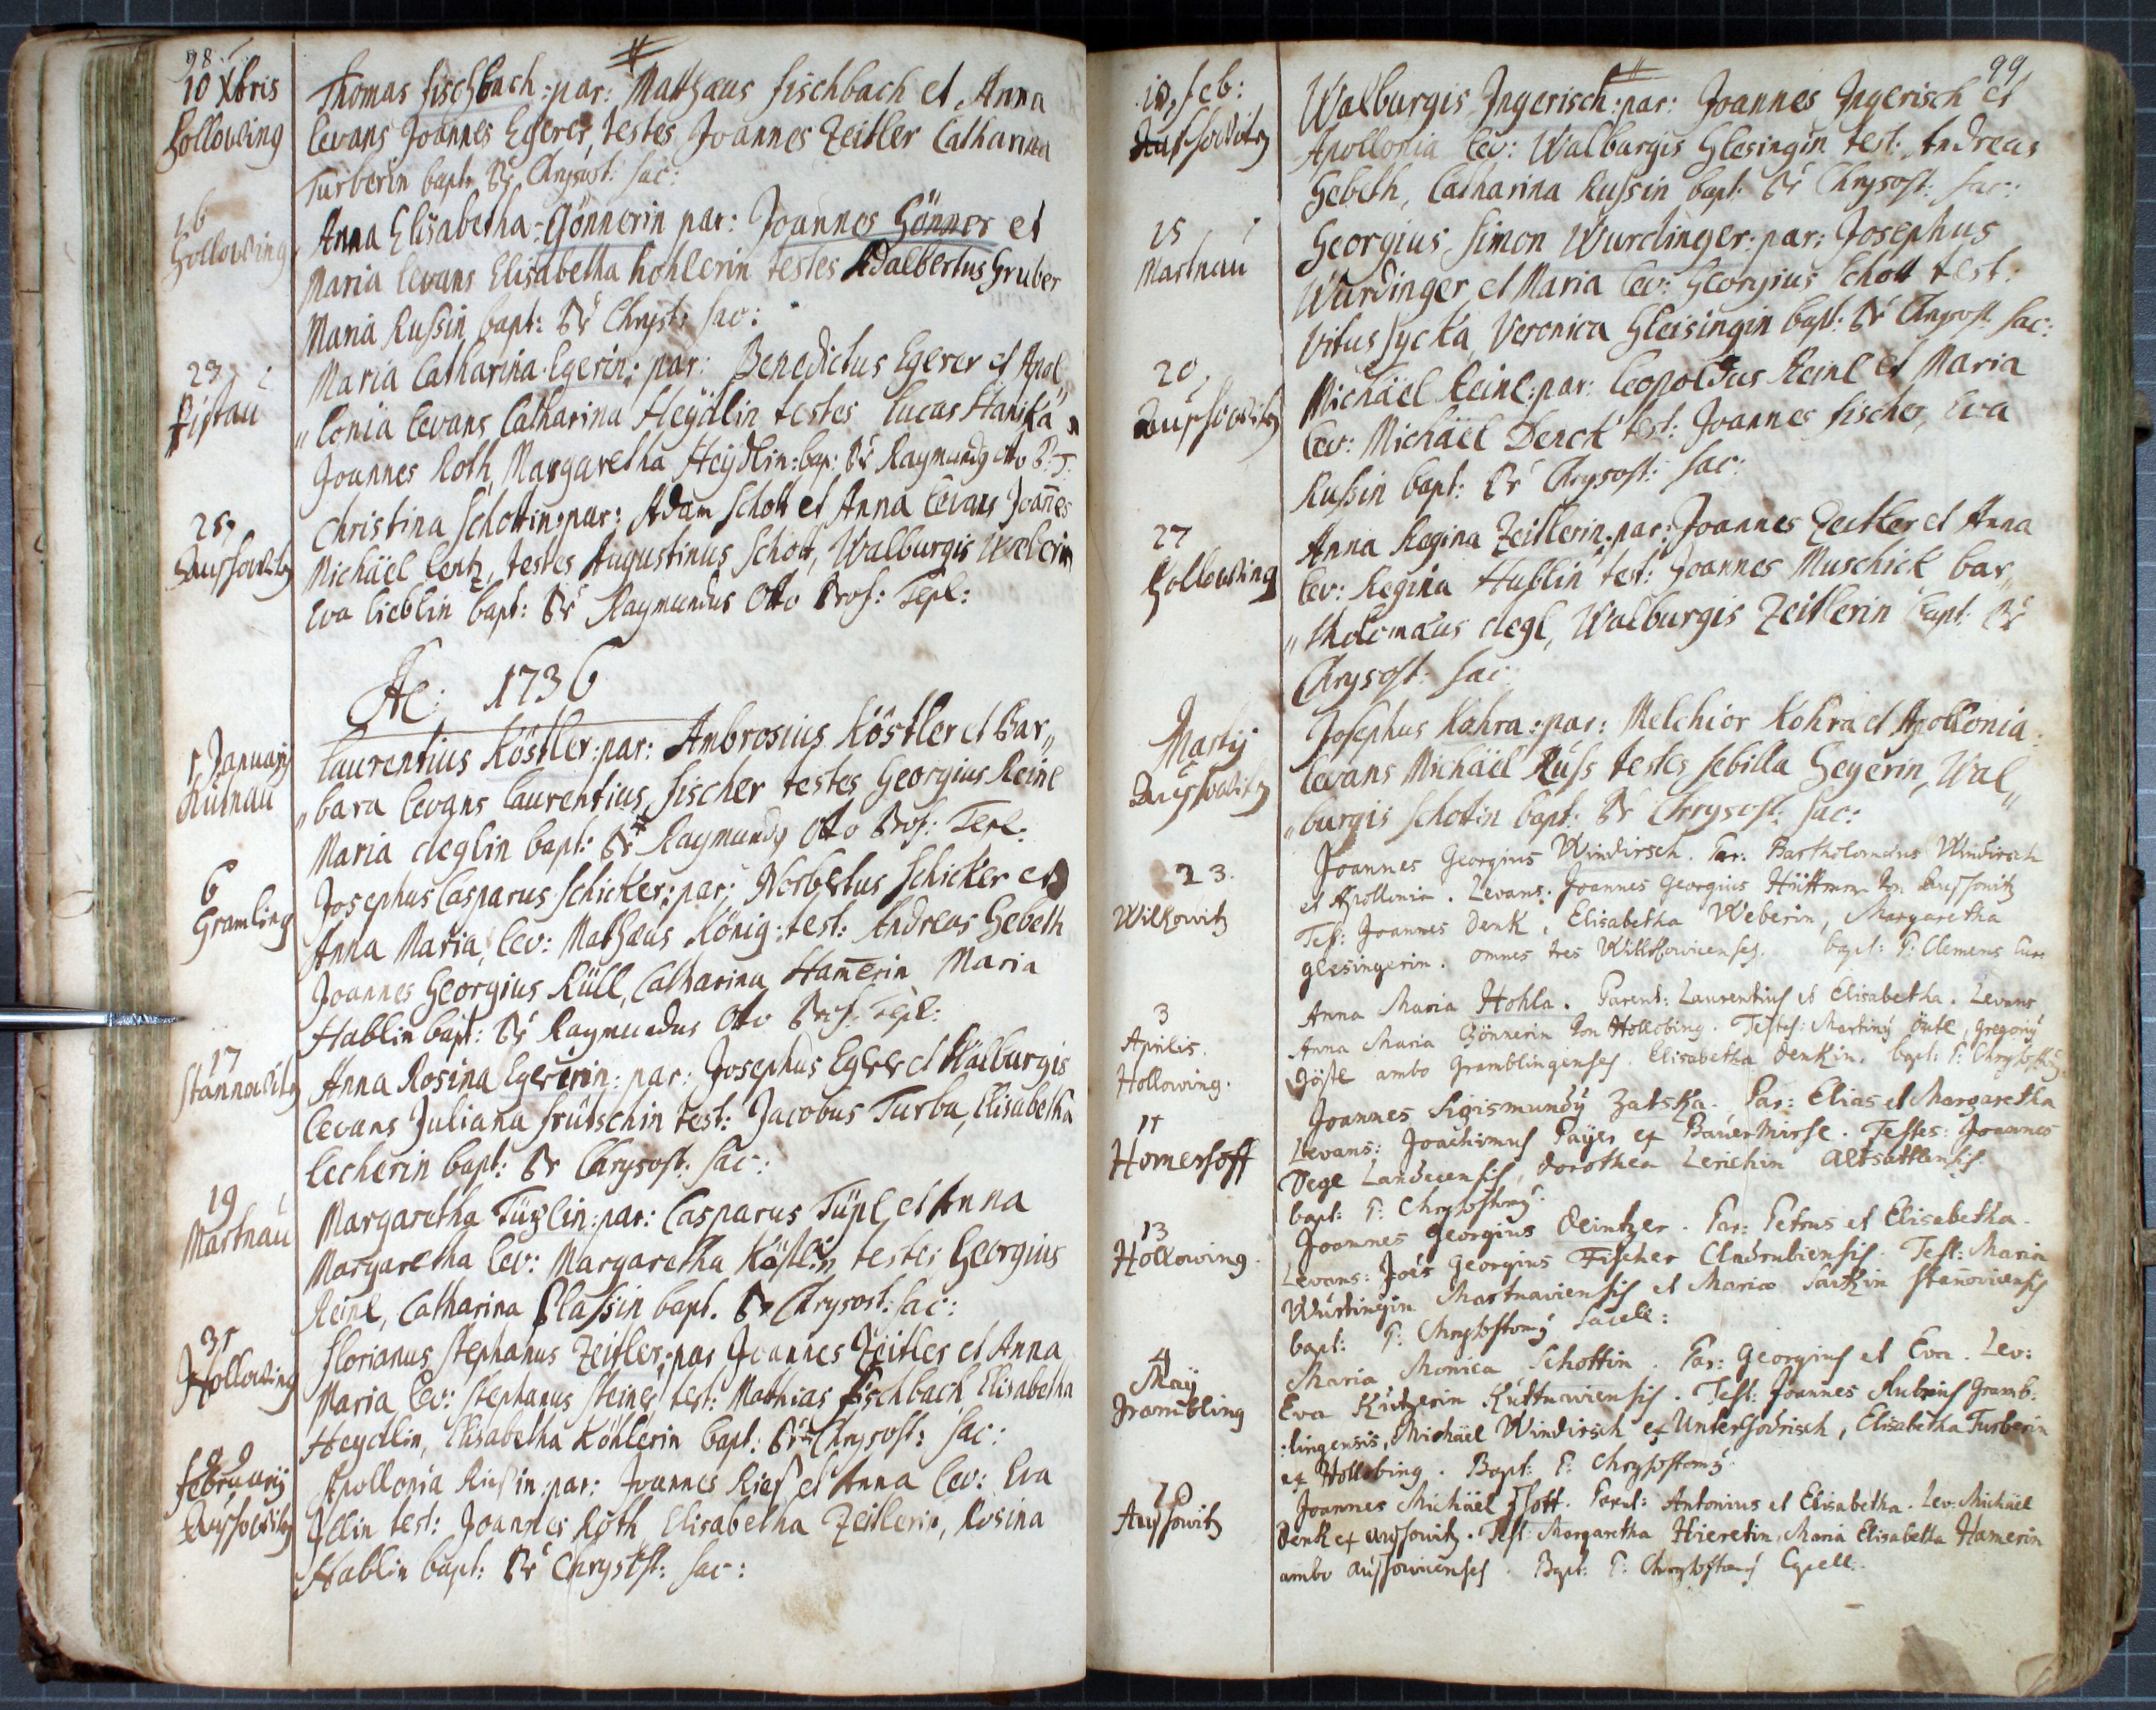 98.
10 Xbris
Hollowing
Thomas Fischbach: par: Mathæus Fischbach et Anna
levans Joannes Egerer, testes Joannes Zeitler Catharina
Turberin bapt: Pr Chrysost: Sac:
16
Hollowing
Anna Elisabetha Gönnerin par: Joannes Gönner et
Maria levans Elisabetha Kohlerin testes Adalbertus Gruber
Maria Russin bapt: Pr Chryst: Sac:
23
Pistau
Maria Catharina Egerin: par: Benedictus Egerer et Apol„
„lonia levans Catharina Heÿdlin testes Lucas Hanika
Joannes Roth, Margaretha Heÿdlin: bap: Pr Raymundg Otto P: T:
25
Aussowitz
Christina Schottin: par: Adam Schott et Anna levans Joañes
Michäel Lentz, testes Augustinus Schott, Walburgis Weberin
Eva Lieblin bapt: Pr Raymundus Otto Prof: Tepl:
Ao: 1736
1 Januarÿ
Kutnau
Laurentius Köstler: par: Ambrosius Köstler et Bar„
„bara levans Laurentius Fischer testes Georgius Reinl
Maria Deglin bapt: Pr Raymundg Otto Prof: Tepl:
6
Gramling
Josephus Casparus Schicker: par: Norbertus Schicker et
Anna Maria, lev: Mathæus König: test: Andreas Gebeth
Joannes Georgius Rüll, Catharina Ham̄erin Maria
Hablin bapt: Pr Raymundus Otto Prof: Tepl:
17
Stannowitz
Anna Rosina Egererin: par: Josephus Egerer et Walburgis
levans Juliana Frütschin test: Jacobus Turba, Elisabetha
Lecherin bapt: Pr Chrysost: Sac:
19
Martnau
Margaretha Tüplin: par: Casparus Tüpl et Anna
Margaretha lev: Margaretha Köstlin testes Georgius
Reinl, Catharina Plassin bapt. Pr Chrysost: Sac:
31
Hollowing
Florianus Stephanus Zeitler: par Joannes Zeitler et Anna
Maria lev: Stephanus Steiner test: Mathias Fischbach Elisabetha
Heydlin, Elisabetha Köhlerin bapt: Pr Chrysost: Sac:
9
Februarÿ
Aussowitz
Apollonia Riessin: par: Joannes Riess et Anna lev: Eva
Illin test: Joannes Roth, Elisabetha Zeitlerin, Rosina
Hablin bapt: Pr Chrysost: Sac:
99
10, Feb:
Aussowitz
Walburgis Ingerisch: par: Joannes Ingerisch et
Apollonia lev: Walburgis Glesingin test: Andreas
Gebeth, Catharina Russin bapt: Pr Chrysost: Sac:
15
Martnau
Georgius Simon Wurdinger: par: Josephus
Wurdinger et Maria lev: Georgius Schott test:
Vitus Sycka, Veronica Gleisingin bapt: Pr Chrysost Sac:
20
Aussowitz
Michäel Reinl: par: Leopoldus Reinl et Maria
lev: Michäel Denck test: Joannes Fischer, Eva
Russin bapt: Pr Chrysost: Sac:
27
Hollowing
Anna Regina Zeitlerin: par: Joannes Zeitler et Anna
lev: Regina Hublin test: Joannes Muschick Bar„
„tholomäus Degl, Walburgis Zeitlerin bapt: Pr
Chrysost: Sac:
Martij
Aussowitz
Josephus Kohra: par: Melchior Kohra et Apollonia
levans Michäel Russ testes Sebilla Geyerin, Wal„
„burgis Schottin bapt: Pr Chrysost: Sac:
23.
Wilkowitz
Joannes Georgius Windirsch. Par: Bartholomäus Windirsch
et Apollonia. Levans: Joannes Georgius Hüttner Von Aussowitz
Test: Joannes Denk, Elisabetha Weberin, Margaretha
Glesingerin. omnes tres Willkowicenses. bapt: P: Clemens
3
Aprilis.
Hollowing.
Anna Maria Hohla. Parent: Laurentius et Elisabetha. Levans
Anna Maria Gönnerin Von Hollobing. Testes: Martinÿ Östl, Gregorÿ
Göstl ambo Gramblingenses. Elisabetha Denkin. bapt: P: Chrysostomÿ
11
Homerhoff
Joannes Sigismundÿ Zatska. Par: Elias et Margaretha
Levans: Joachimus Paÿer ex Bauschwirse. Testes: Joannes
Degl Landecensis, Dorothea Lerichin Altsattlensis.
bapt: P: Chrysostomÿ.
13
Hollowing.
Joannes Georgius Deintzer. Par: Petrus et Elisabetha.
Levans: Joēs Georgius Fischer Cladrubiensis. Test: Maria
Würtingin Martnaviensis et Maria Sackin Stañoviensis
bapt: P: Chrysostomÿ Sacell:
4
Maÿ
Grambling
Maria Monica Schottin. Par: Georgius et Eva. Lev:
Eva Kützerin Kuttnaviensis. Test: Joannes Rubrius Gramb:
:lingensis, Michäel Windirsch ex Untergodrisch, Elisabetha Turberin
ex Hollobing. Bapt: P: Chrysostomÿ.
10
Aussowitz
Joannes Michäel Schott. Parent: Antonius et Elisabetha. Lev: Michäel
Denk ex Aussowitz. Test: Margaretha Hieretin, Maria Elisabetha Hamerin
ambo Aussowicenses. Bapt: P: Chrysostomÿ Capell.